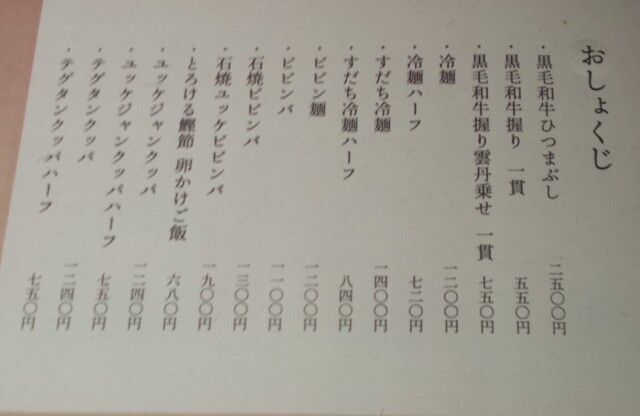 おしょくじ
・黒毛和牛ひつまぶし 二五〇〇円
・黒毛和牛握り 一貫 五五〇円
・黒毛和牛握り雲丹乗せ 一貫 七五〇円
・冷麺 一二〇〇円
・冷麺ハーフ 七二〇円
・すだち冷麺 一四〇〇円
・すだち冷麺ハーフ 八四〇円
・ビビン麺 一二〇〇円
・ビビンバ 一一〇〇円
・石焼ビビンバ 一三〇〇円
・石焼ユッケビビンバ 一九〇〇円
・とろける鰹節 卵かけご飯 六八〇円
・ユッケジャンクッパ 一二四〇円
・ユッケジャンクッパハーフ 七五〇円
・テグタンクッパ 一二四〇円
・テグタンクッパハーフ 七五〇円